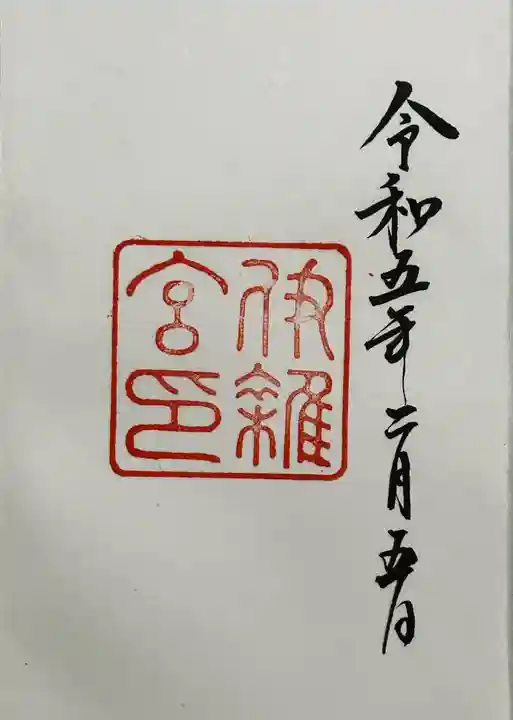 令和五年二月五日
伊雜
宮印